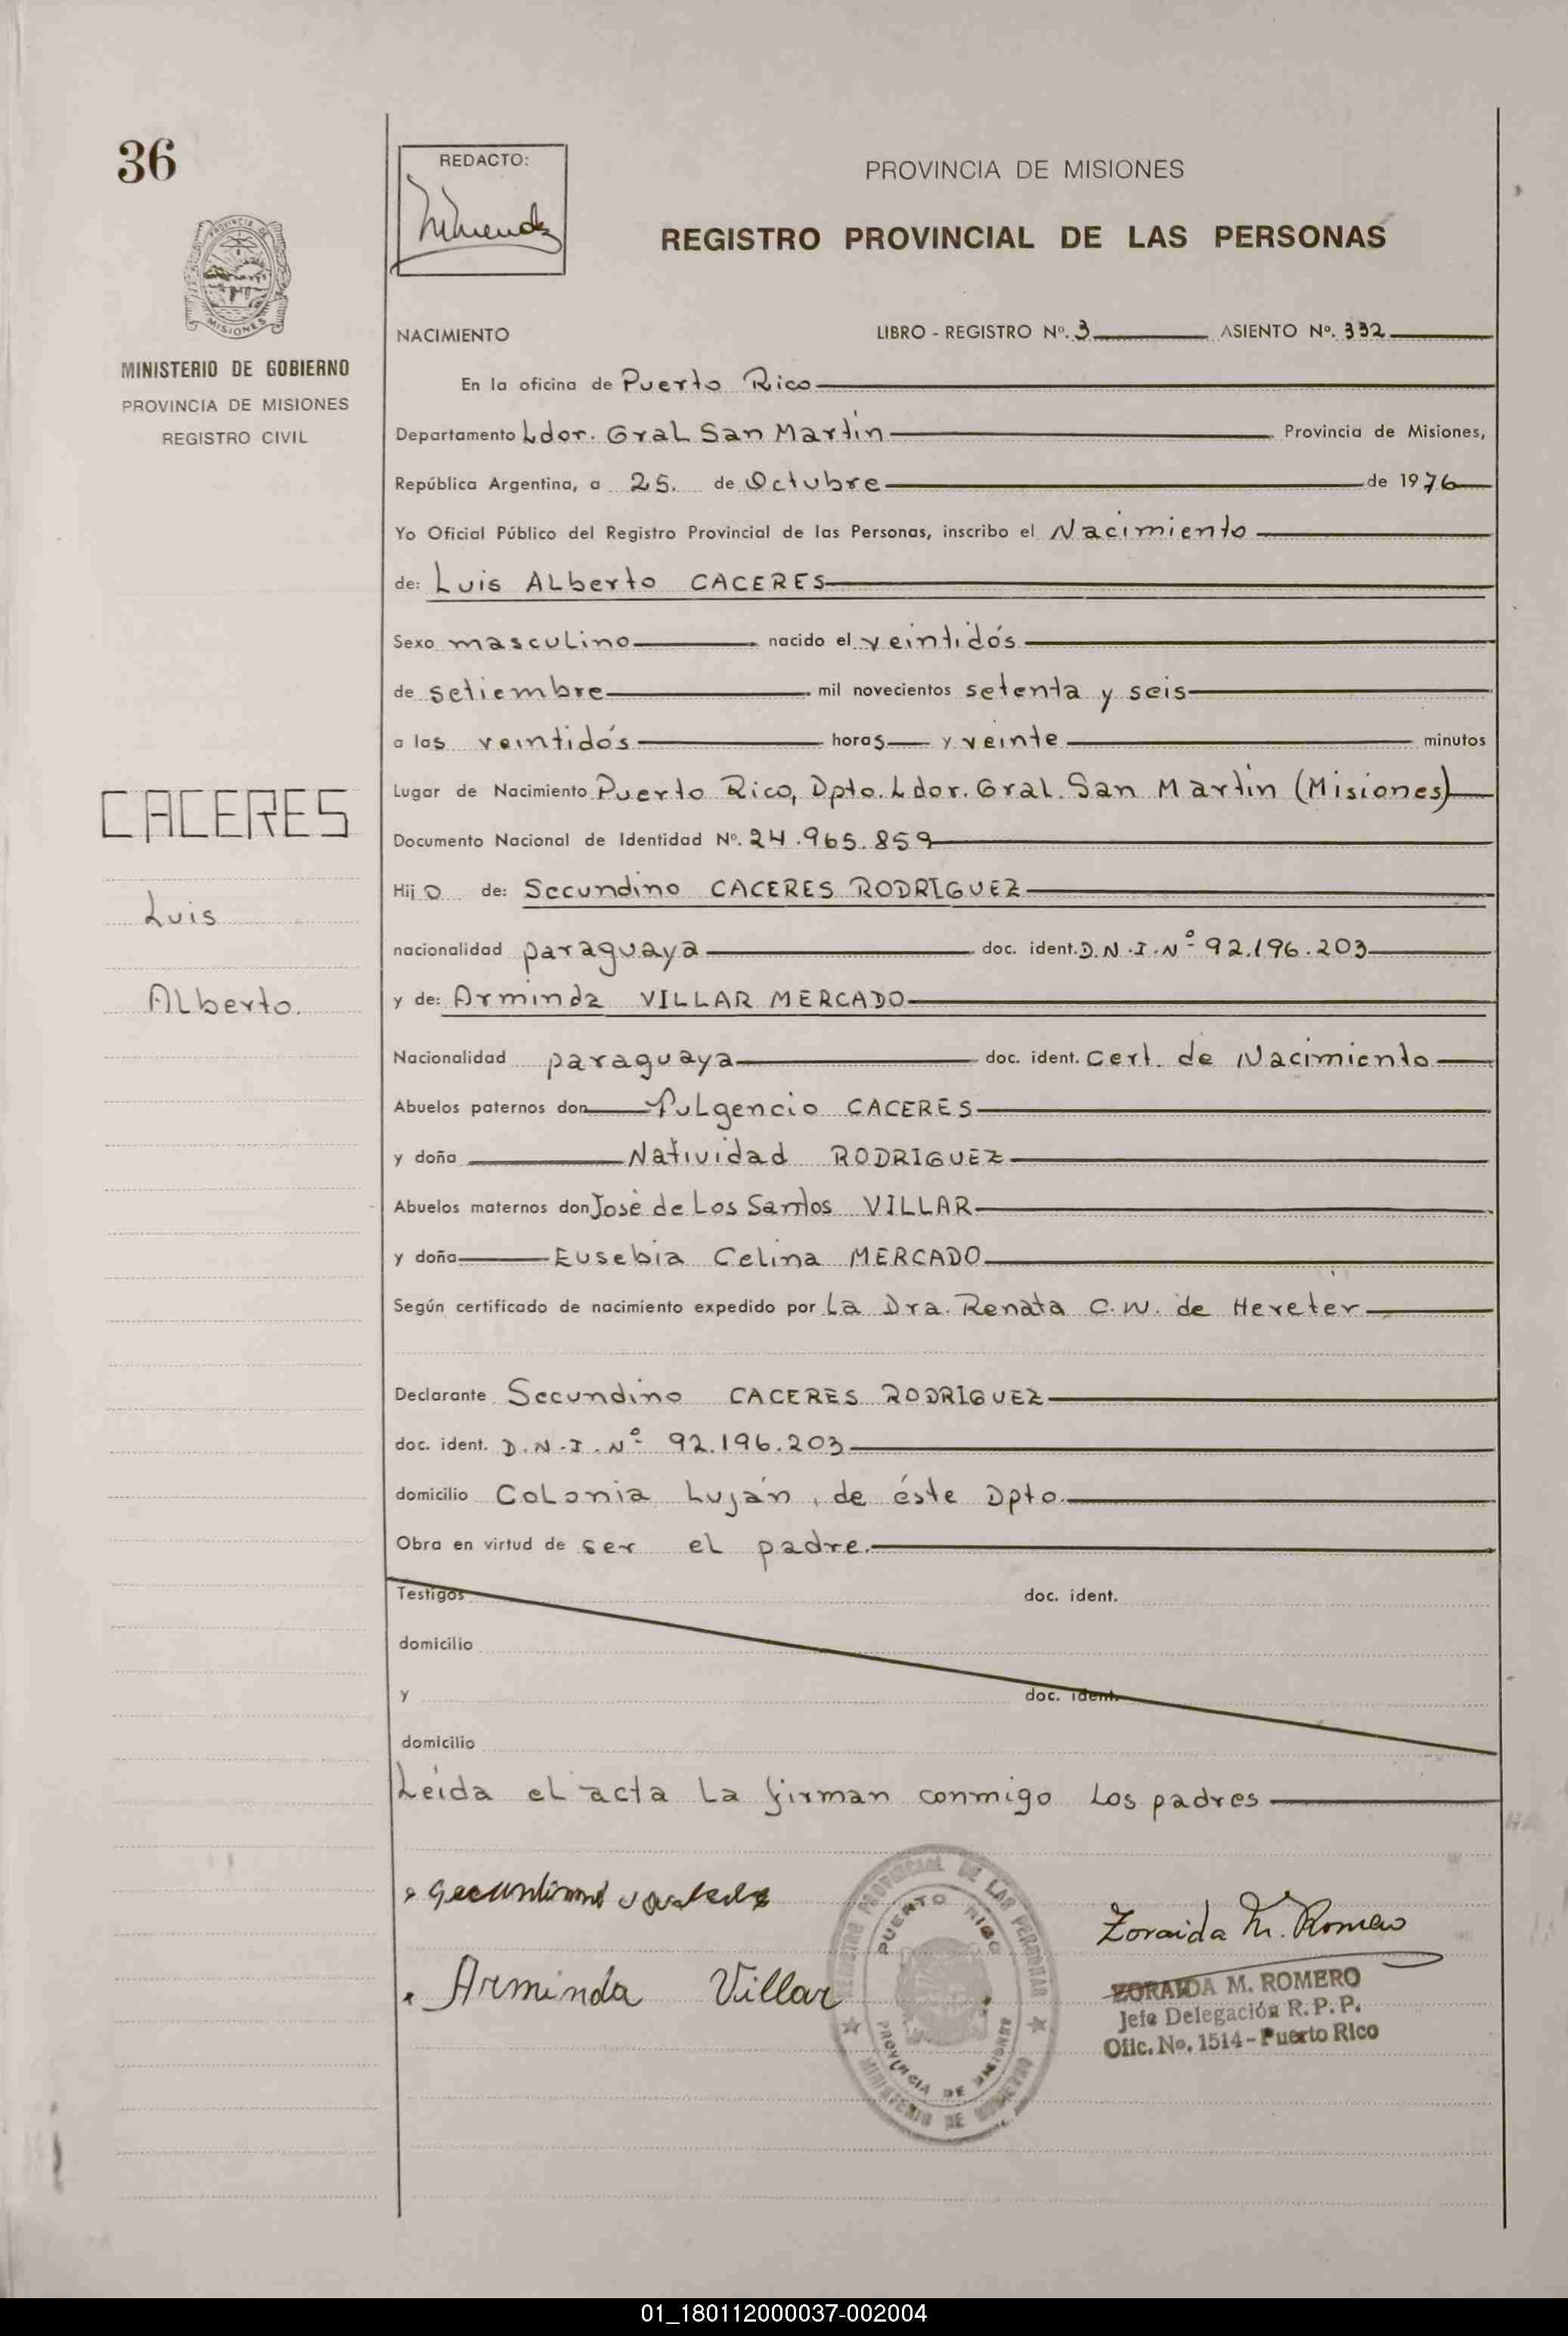 36
REDACTO:
PROVINCIA DE MISIONES
REGISTRO PROVINCIAL DE LAS PERSONAS
PROVINCIA DE
MISIONES
MINISTERIO DE GOBIERNO
PROVINCIA DE MISIONES
REGISTRO CIVIL
NACIMIENTO LIBRO - REGISTRO Nº. 3 ASIENTO Nº. 332
En la oficina de Puerto Rico
Departamento Ldor. Gral San Martín Provincia de Misiones,
República Argentina, a 25. de Octubre de 1976
Yo Oficial Público del Registro Provincial de las Personas, inscribo el Nacimiento
de: Luis Alberto CACERES
Sexo masculino nacido el veintidós
de setiembre mil novecientos setenta y seis
a las veintidós horas y veinte minutos
Lugar de Nacimiento Puerto Rico, Dpto. Ldor. Gral. San Martín (Misiones)
Documento Nacional de Identidad Nº. 24.965.859
Hijo de: Secundino CACERES RODRIGUEZ
nacionalidad paraguaya doc. ident. D.N.I.Nº 92.196.203
y de: Arminda VILLAR MERCADO
Nacionalidad paraguaya doc. ident. Cert. de Nacimiento
Abuelos paternos don Fulgencio CACERES
y doña Natividad RODRIGUEZ
Abuelos maternos don José de Los Santos VILLAR
y doña Eusebia Celina MERCADO
Según certificado de nacimiento expedido por La Dra. Renata C.W. de Hereter
Declarante Secundino CACERES RODRIGUEZ
doc. ident. D.N.I.Nº 92.196.203
domicilio Colonia Luján, de éste Dpto.
Obra en virtud de ser el padre.
Testigos doc. ident.
domicilio
y doc. ident.
domicilio
Leída el acta la firman conmigo los padres
CACERES
Luis
Alberto.
Arminda Villar
REGISTRO PROVINCIAL DE LAS PERSONAS
PUERTO RICO
PROVINCIA DE MISIONES
MINISTERIO DE GOBIERNO
Zoraida M. Romero
ZORAIDA M. ROMERO
Jefe Delegación R.P.P.
Ofic. No. 1514 - Puerto Rico
01_180112000037-002004